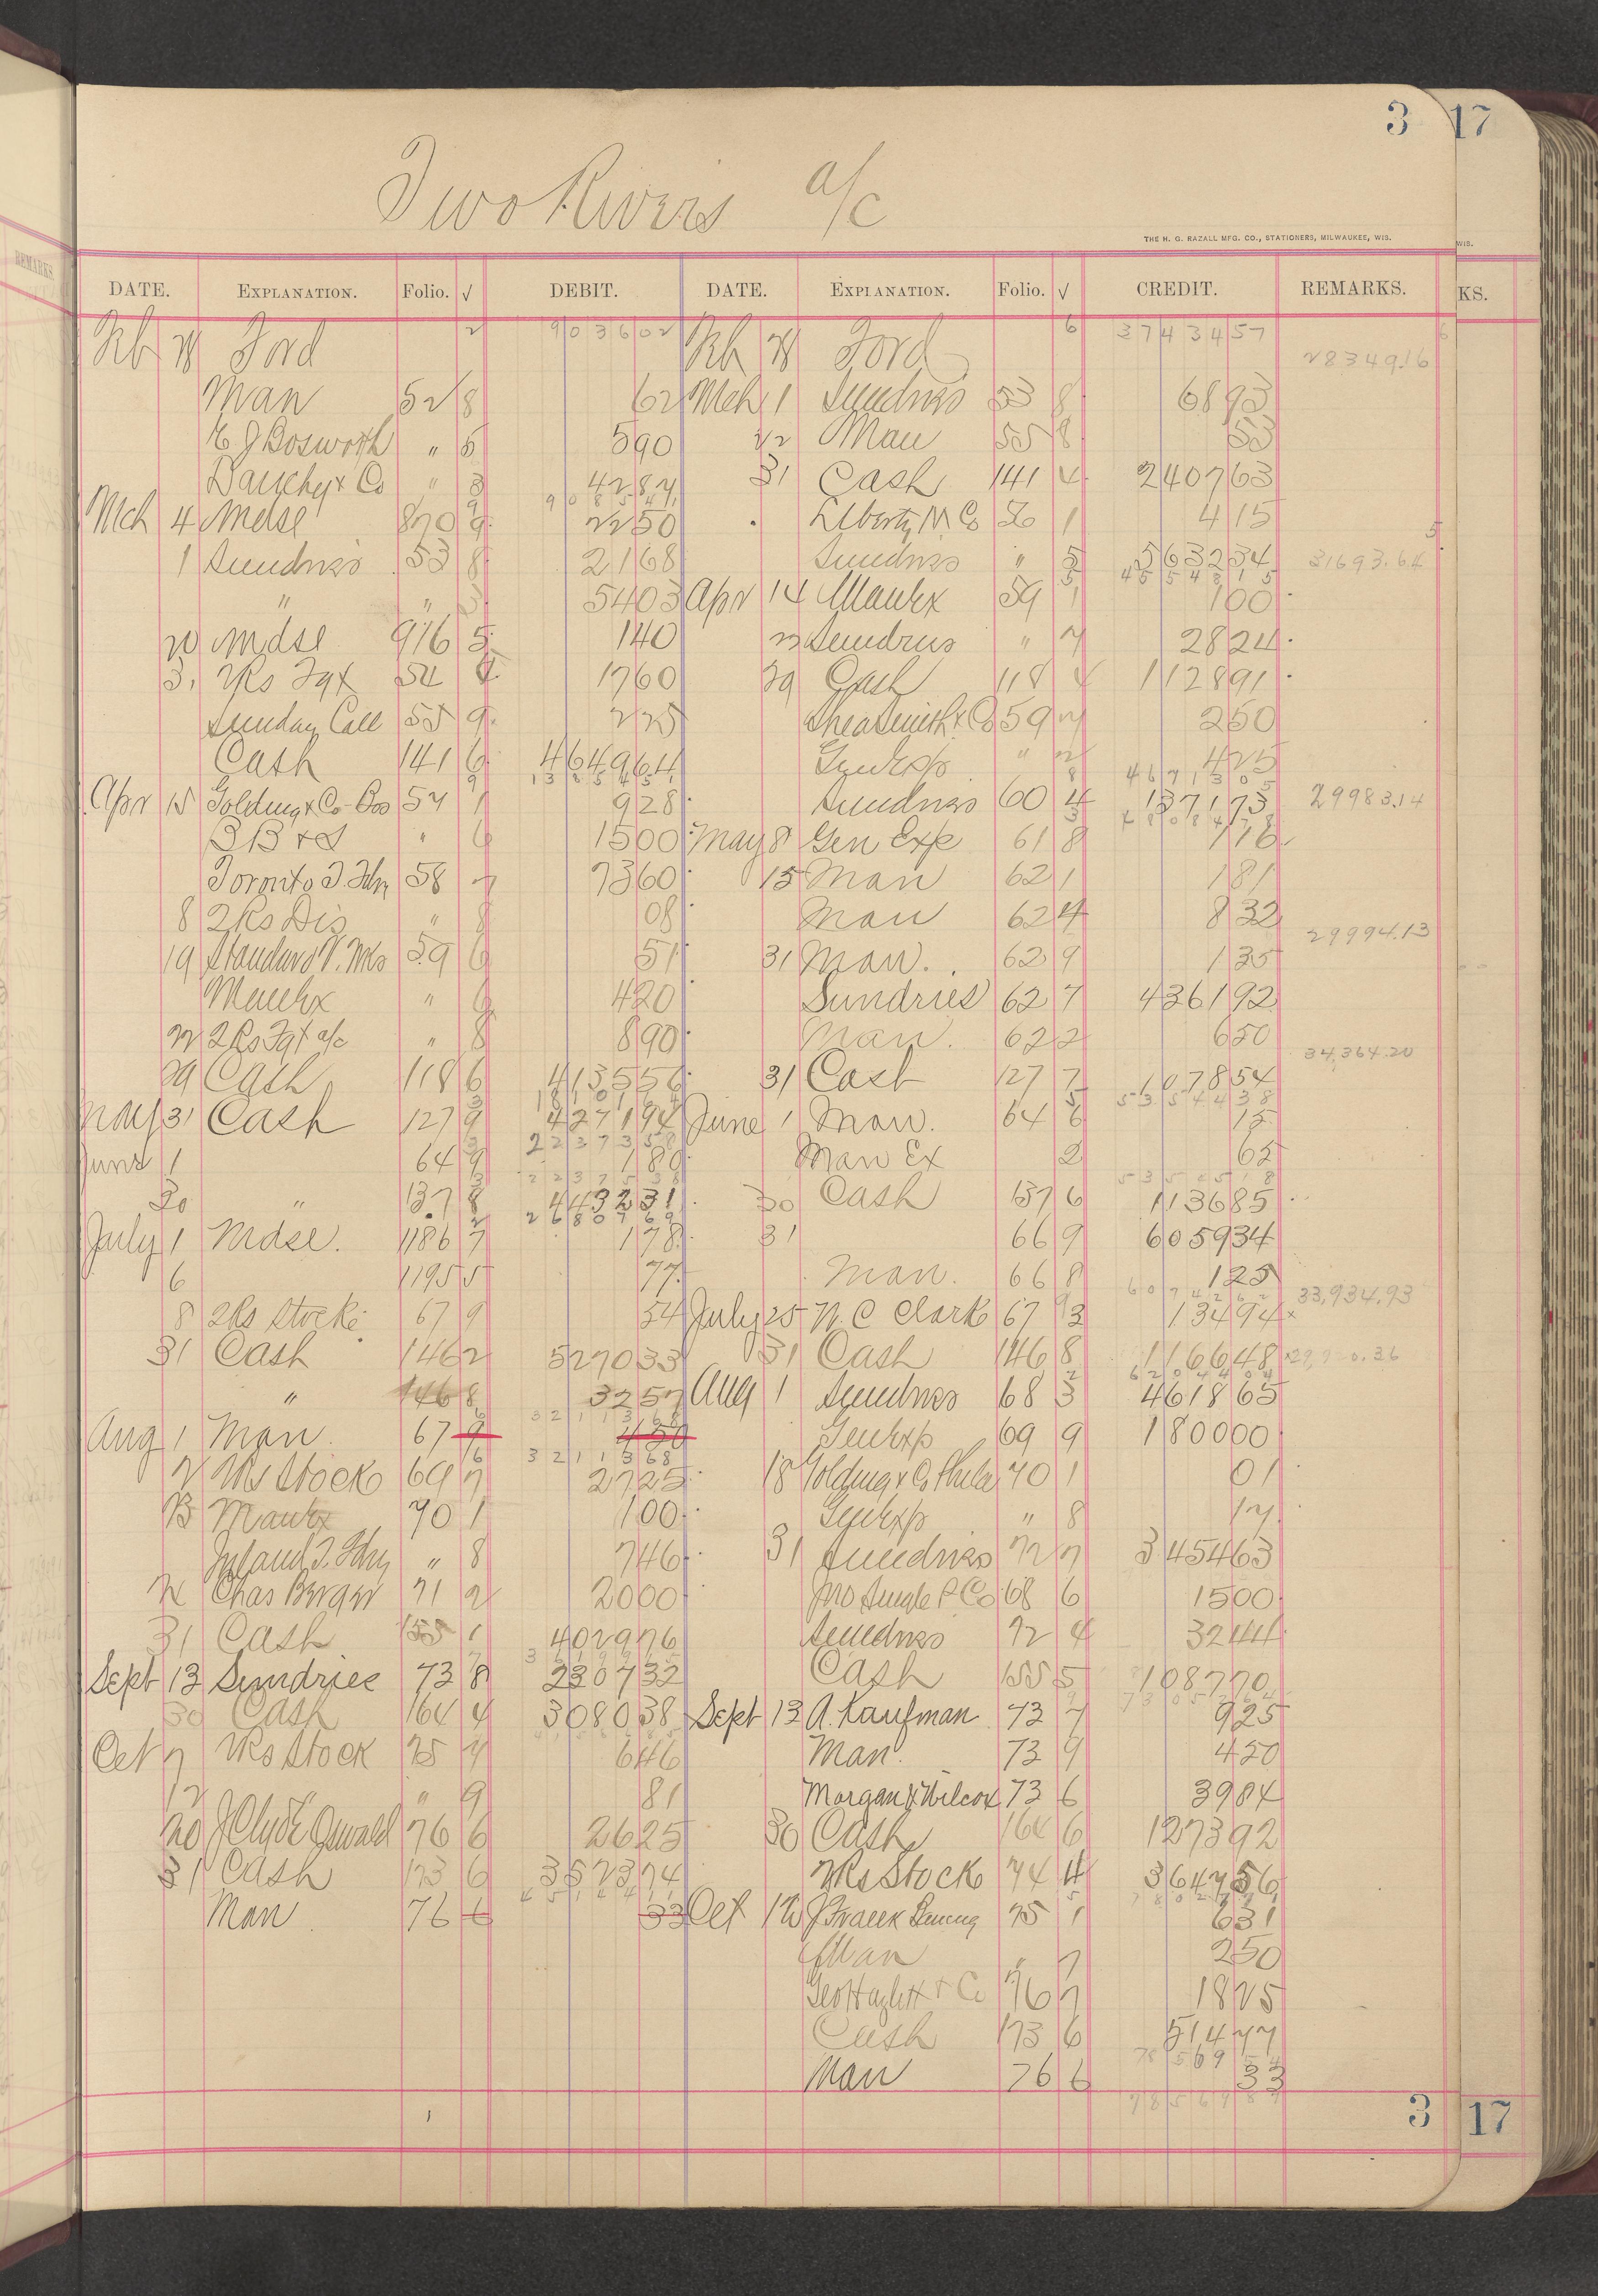 3 17
Two Rivers a/c
THE H. G. RAZALL MFG. CO., STATIONERS, MILWAUKEE, WIS. WIS.
REMARKS
DATE. EXPLANATION. Folio. √ DEBIT. DATE. EXPLANATION. Folio. √ CREDIT. REMARKS. KS.
Feb 28 Ford 2 903602 Feb 28 Ford 6 3743457 28349.16
Man 52 8 62 Mch 1 Sundries 53 8 6893
E J Bosworth " 5 590 22 Man 55 8 53
Dauchy & Co " 3 4287 31 Cash 141 4 240763
Mch 4 Mdse 870 9 2250 Liberty M Co 56 1 415
1 Sundries 53 8 2168 Sundries " 5 563234 31693.64
" " 5403 Apr 14 Man Ex 59 1 100
20 Mdse 916 5 140 Sundries " 7 2824
31 2Rs Fgt 54 4 1760 29 Cash 118 4 112891
Sunday Call 55 9 225 Shea Smith & Co 59 7 250
Cash 141 6 464964 Gen Exp " 2 425
Apr 15 Golding & Co-Bos 57 1 928 Sundries 60 4 137173 29983.14
B B & S " 6 1500 May 8 Gen Exp 61 8 116
Toronto T. Fdry 58 7 7360 15 Man 62 1 181
8 2Rs Dis " 8 08 Man 62 4 832 29994.13
19 Standard V. Wks 59 6 51 31 Man. 62 9 135
Man Ex " 6 420 Sundries 62 7 436192
22 2Rs Fgt a/c " 8 890 Man. 62 2 650 34,364.20
29 Cash 118 6 413556 31 Cash 127 7 107854
May 31 Cash 127 9 427194 June 1 Man. 64 6 15
June 1 64 9 180 Man Ex 2 65
30 " 137 8 443231 30 Cash 137 6 113685
July 1 Mdse. 1186 7 178 31 66 9 605934
6 1195 5 77 Man. 66 8 125 33,934.93
8 2Rs Stock 67 9 54 July 25 N. C Clark 67 3 13494
31 Cash 146 2 527033 31 Cash 146 8 116648
" 146 8 3257 Aug 1 Sundries 68 3 461865
Aug 1 Man. 67 9 450 Gen Exp 69 9 180000
2 2Rs Stock 69 7 2725 18 Golding & Co Phila 70 1 01
13 Man Ex 70 1 100 Gen Exp " 8 17
Inland T. Fdry " 8 746 31 Sundries 72 7 345463
Chas Berger 71 2 2000 68 6 1500
31 Cash 155 1 402976 Sundries 72 4 3244
Sept 13 Sundries 73 8 230732 Cash 155 5 108770
30 Cash 164 4 308038 Sept 13 A. Kaufman 73 7 925
Oct 7 2Rs Stock 75 7 646 Man. 73 9 450
12 " 9 81 Morgan & Wilcox 73 6 3984
20 J Clyde Oswald 76 6 2625 30 Cash 164 6 127392
31 Cash 173 6 352374 2Rs Stock 74 4 364756
Man 76 6 33 Oct 75 1 631
Man " 7 250
Geo Hazlett & Co 76 7 1825
Cash 173 6 51477
Man 76 6 33
3 17